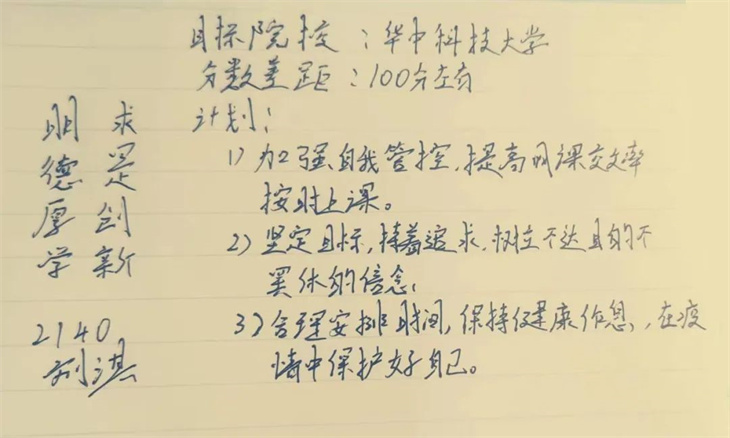 目标院校：华中科技大学
分数差距：100分左右
计划：
1）加强自我管控，提高网课效率
按时上课。
2）坚定目标，持着追求，树立不达目的不
罢休的信念，
3）合理安排时间，保持健康作息，在疫
情中保护好自己。
明德厚学
求是创新
2140
刘淇